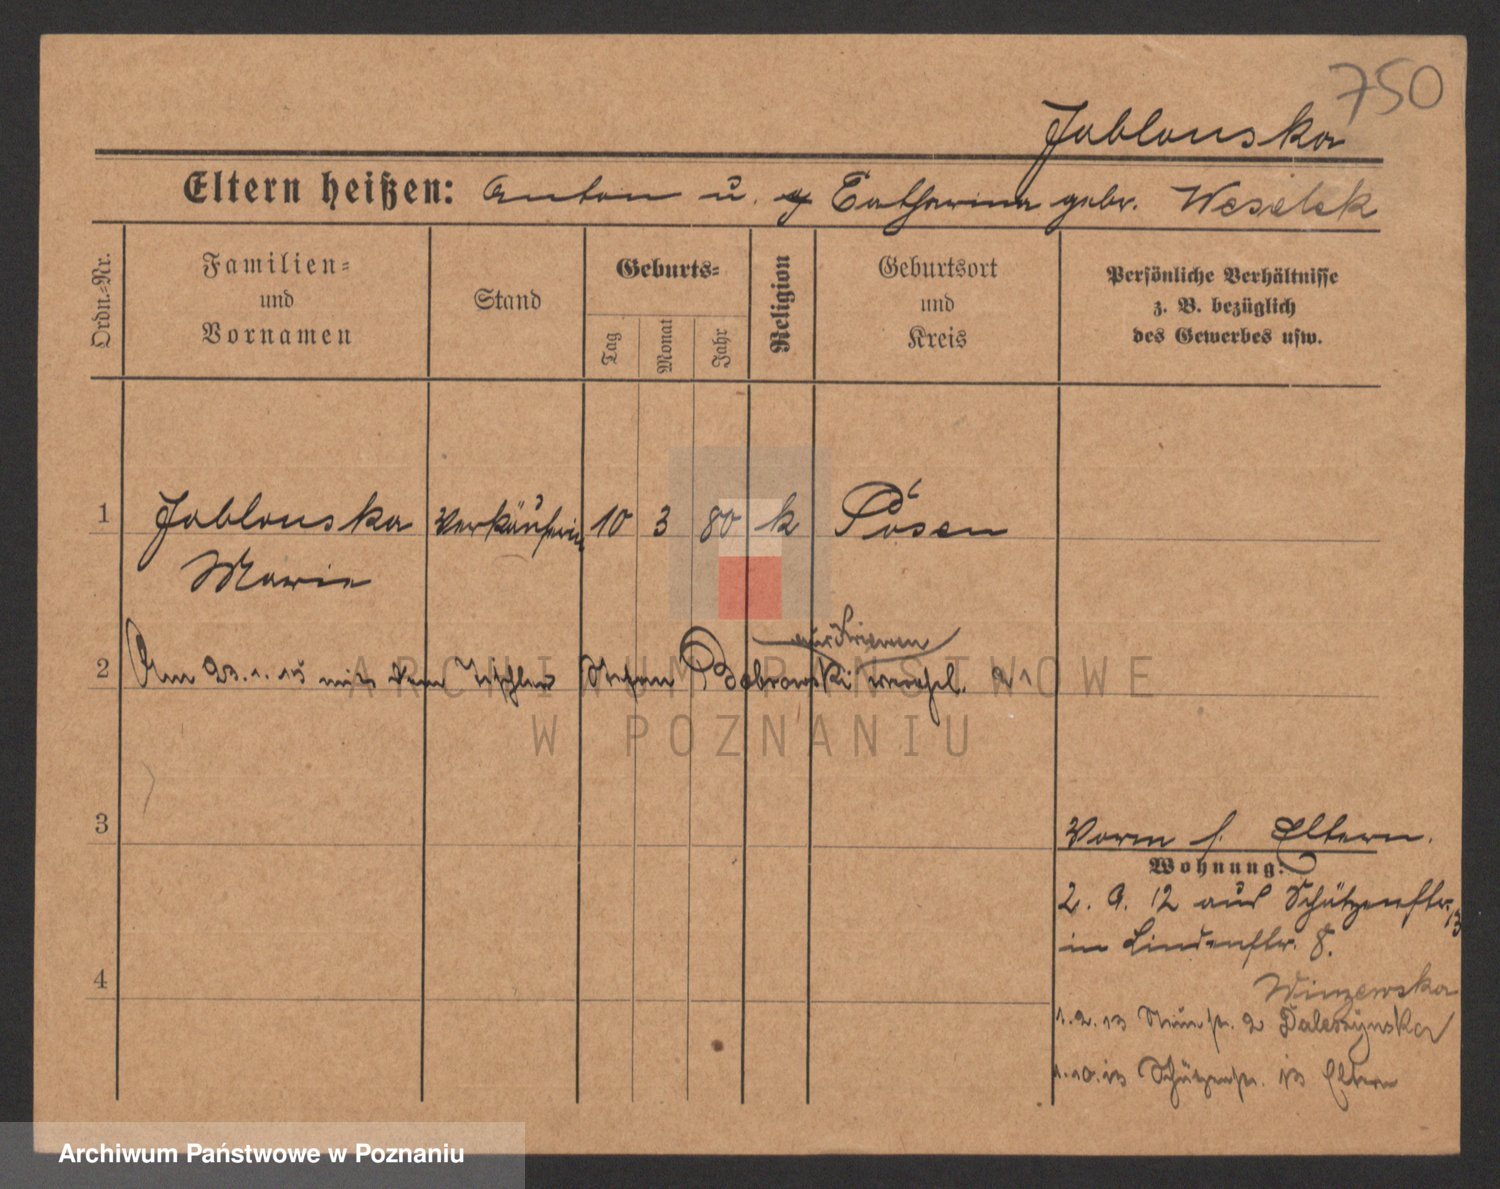 750
Jablonska
Eltern heißen: Anton u. Catharina gebr. Weselek
Ordn.-Nr.
Familien-
und
Vornamen
Stand
Geburts-
Tag
Monat
Jahr
Religion
Geburtsort
und
Kreis
Persönliche Verhältnisse
z. B. bezüglich
des Gewerbes usw.
1 Jablonska Verkäuferin 10 3 80 k Posen
Marie
2 Am 23.1.15 mit dem Tischler Stefan Dobrowski verehel.
3
Vorm f. Eltern.
Wohnung:
2. 9. 12 aus Schützenstr. 13
in Lindenstr. 8.
4
Winzewska
1.2.13 2 Daleszynska
1.10.13 Schützenstr. 13 Eltern
ARCHIWUM PAŃSTWOWE
W POZNANIU
Archiwum Państwowe w Poznaniu